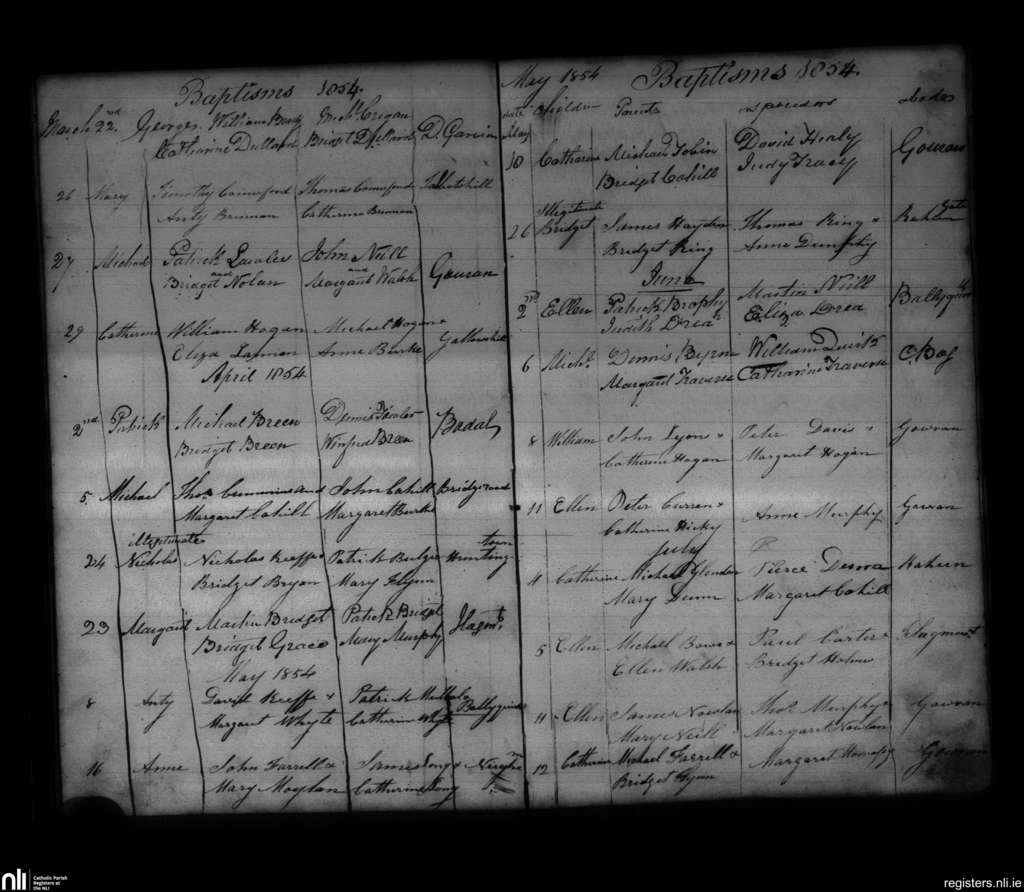 Baptisms 1854.
March 22nd. George William Mich. Grigan
Catharine Dullard Bridget Dullard D. Garvin
26 Mary Timothy Comerford Thomas Comerford
Anty Brennan Catherine Brennan
27 Michael Patrick Lawler John Nill
and and
Bridget Nolan Margaret Walsh Gowran
29 Catherine William Hogan Michael Hogan
Eliza Lannon Anne Burke
April 1854
2nd Patrick Michael Breen Dennis Lawler
Bridget Breen Winifred Breen Bodal
5 Michael Thos Cummins and John Cahill Bridge road
Margaret Cahill Margaret Burke
illegitimate town
24 Nicholas Nicholas Keeffe Patrick Bulger Hunting
Bridget Bryan Mary Flynn
23 Margaret Martin Bridget Patrick Bridget
Bridget Grace Mary Murphy Flagmt.
May 1854
8 Anty David Keeffe & Patrick
Margaret Whyte Catherine Whyte
16 Anne John Farrell & James Long &
Mary Moylan Catherine Long
May 1854 Baptisms 1854.
date children Parents sponsors abodes
May
10 Catharine Michael Tobin David Healy Gowran
Bridget Cahill Judy Tracey
Illegitimate
26 Bridget James Hayden Thomas King &
Bridget King Anne Dunphy
June
2nd Ellen Patrick Brophy Martin Nill
Judith Drea Eliza Drea
6 Michl. Dennis Byrne William Quirk
Margaret Traverse Catharine Traverse
8 William John Lyon & Peter Davis & Gowran
Catherine Hogan Margaret Hogan
11 Ellen Peter Curren & Anne Murphy Gowran
Catherine Hicky
July
4 Catherine Michael Pierce Raheen
Mary Dunn Margaret Cahill
5 Ellen Michael Bowe & Paul Carter & Flagmount
Ellen Walsh Bridget Holme
11 Ellen James Nowlan Thos Murphy & Gowran
Mary Neill Margaret Nowlan
12 Catherine Michael Farrell & Margaret Gowran
Bridget Flynn
nli Catholic Parish
Registers at
the NLI
registers.nli.ie